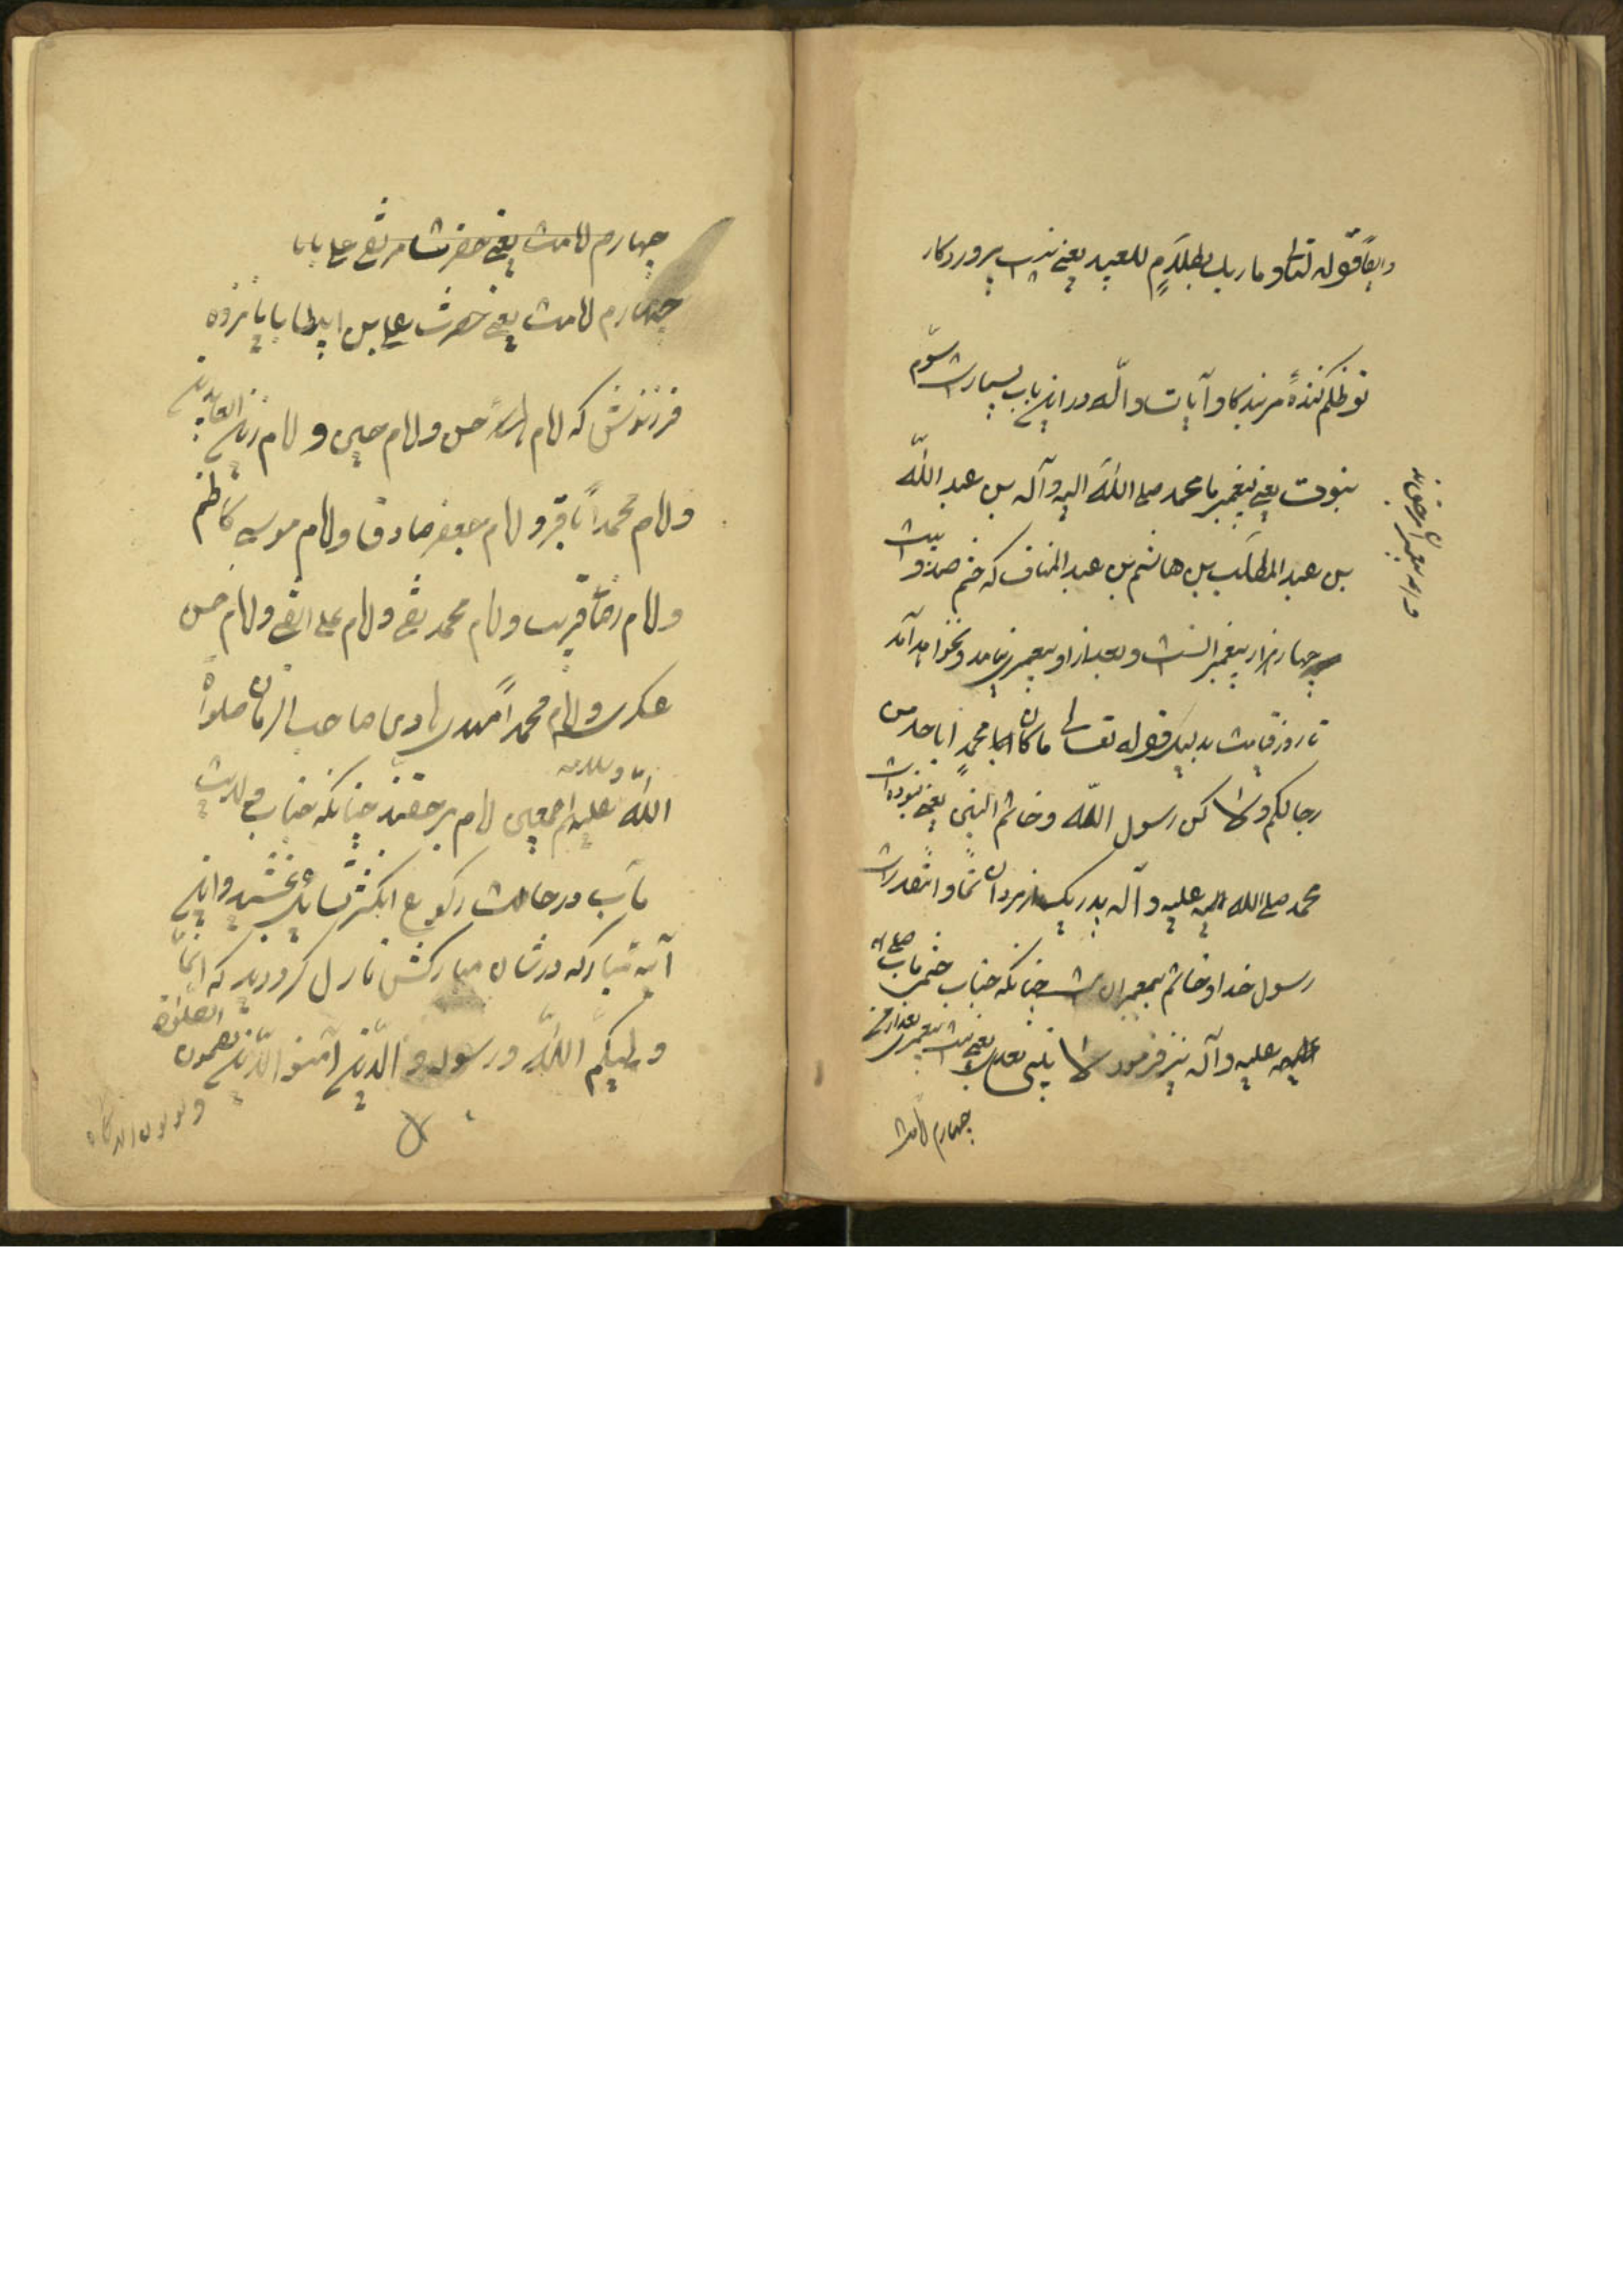 وایضاً قوله تعالی و ما ربک بظلّامٍ للعبید یعنی نیست پروردکار
تو ظلم کنندهٔ مر بندکا و آیات و الّه در این باب بسیار است سوّم
نبوت یعنی پیغمبر ما محمد صلی اللّه الیه و آله بن عبد اللّه
بن عبد المطلّب بن هاشم بن عبد المناف که ختم صد و بیست
چهار هزار پیغمبر است و بعد از او پیغمبری نیامد و نخواهد آمد
تا روز قیامت بدلیل قوله تعالی ما کان محمدٍ ابا احد من
رجالکم و لاکن رسول اللّه و خاتم النبیین یعنی نبوده است
محمد صلی الله علیه و آله پدر یک از مردان شما و
رسول خدا و خاتم پیغمبران است چنانکه جناب ختمی مآب صلی الله
علیه و آله نیز فرمود لا نبی بعدی یعنی نیست پیغمبری بعد از من
چهارم امامت
چهارم امامت یعنی حضرت مرتضی علی با با
چهارم امامت یعنی حضرت علی بن ابیطا با یانزده
فرزندش که امام حسن و امام حسین و امام زین العابدین
و امام محمد باقر و امام جعفر صادق و امام موسی کاظم
و امام رضا غریب و امام محمد تقی و امام علی النقی و امام حسن
عسکری و امام محمد مهدی هادی صاحب الزمان صلواة
اللّه علیهم اجمعین امام بر حقند چنانکه جناب ولایت
مآب در حالت رکوع انکشتر بسائل بخشید و این
آیه مبارکه در شان مبارکش نازل کردید که انّما
ولیکم اللّه و رسوله و الّذین آمنو الّذین یقیمون الصلوة
و یؤتون الزکاة